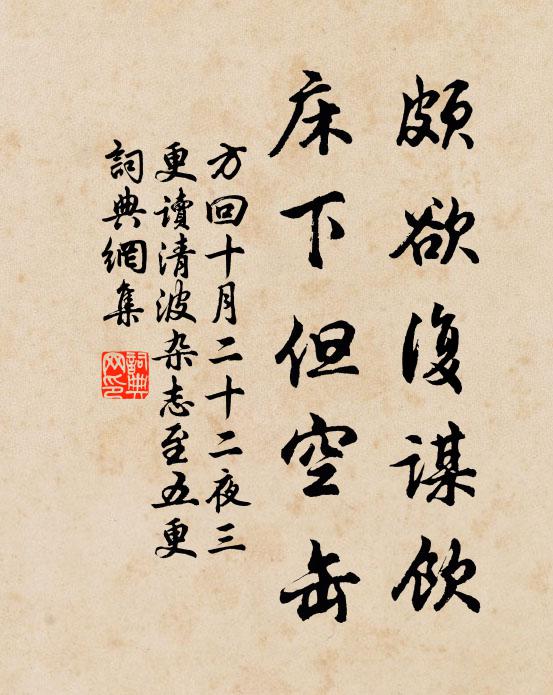 頗欲復謀飲
床下但空缶
方回十月二十二夜三
更讀清波杂志至五更
詞典網集
詞典網印